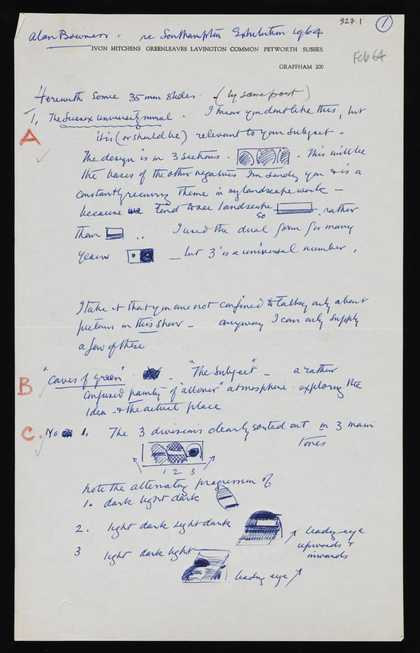 Alan Bowness - re Southampton Exhibition 1964
927.1
1
IVON HITCHENS GREENLEAVES LAVINGTON COMMON PETWORTH SUSSEX
GRAFFHAM 200
Feb 64
Herewith some 35 mm slides - (by same post)
1, The Sussex University mural. I know you dont like this, but
A
it is (or should be) relevant to your subject -
The design is in 3 sections. This will be
the bases of the other negatives I'm sending you & is a
constantly recurring theme in my landscape work -
because we tend to see landscape so rather
than .. I used the dual form for many
years - but 3 is a universal number.
I take it that you are not confined to talking only about
pictures in this show - anyway I can only supply
a few of these
B
"Caves of Green" "The Subject" - a rather
confused painting of "allover" atmosphere - exploring the
idea & the actual place
C. No 1. The 3 divisions clearly sorted out in 3 main
tones
1 2 3
note the alternating progression of
1. dark light dark
2. light dark light dark
leading eye
upwards &
inwards
3 light dark light
leading eye